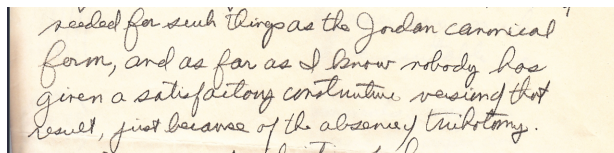 needed for such things as the Jordan canonical
form, and as far as I know nobody has
given a satisfactory constructive version of that
result, just because of the absence of trichotomy.